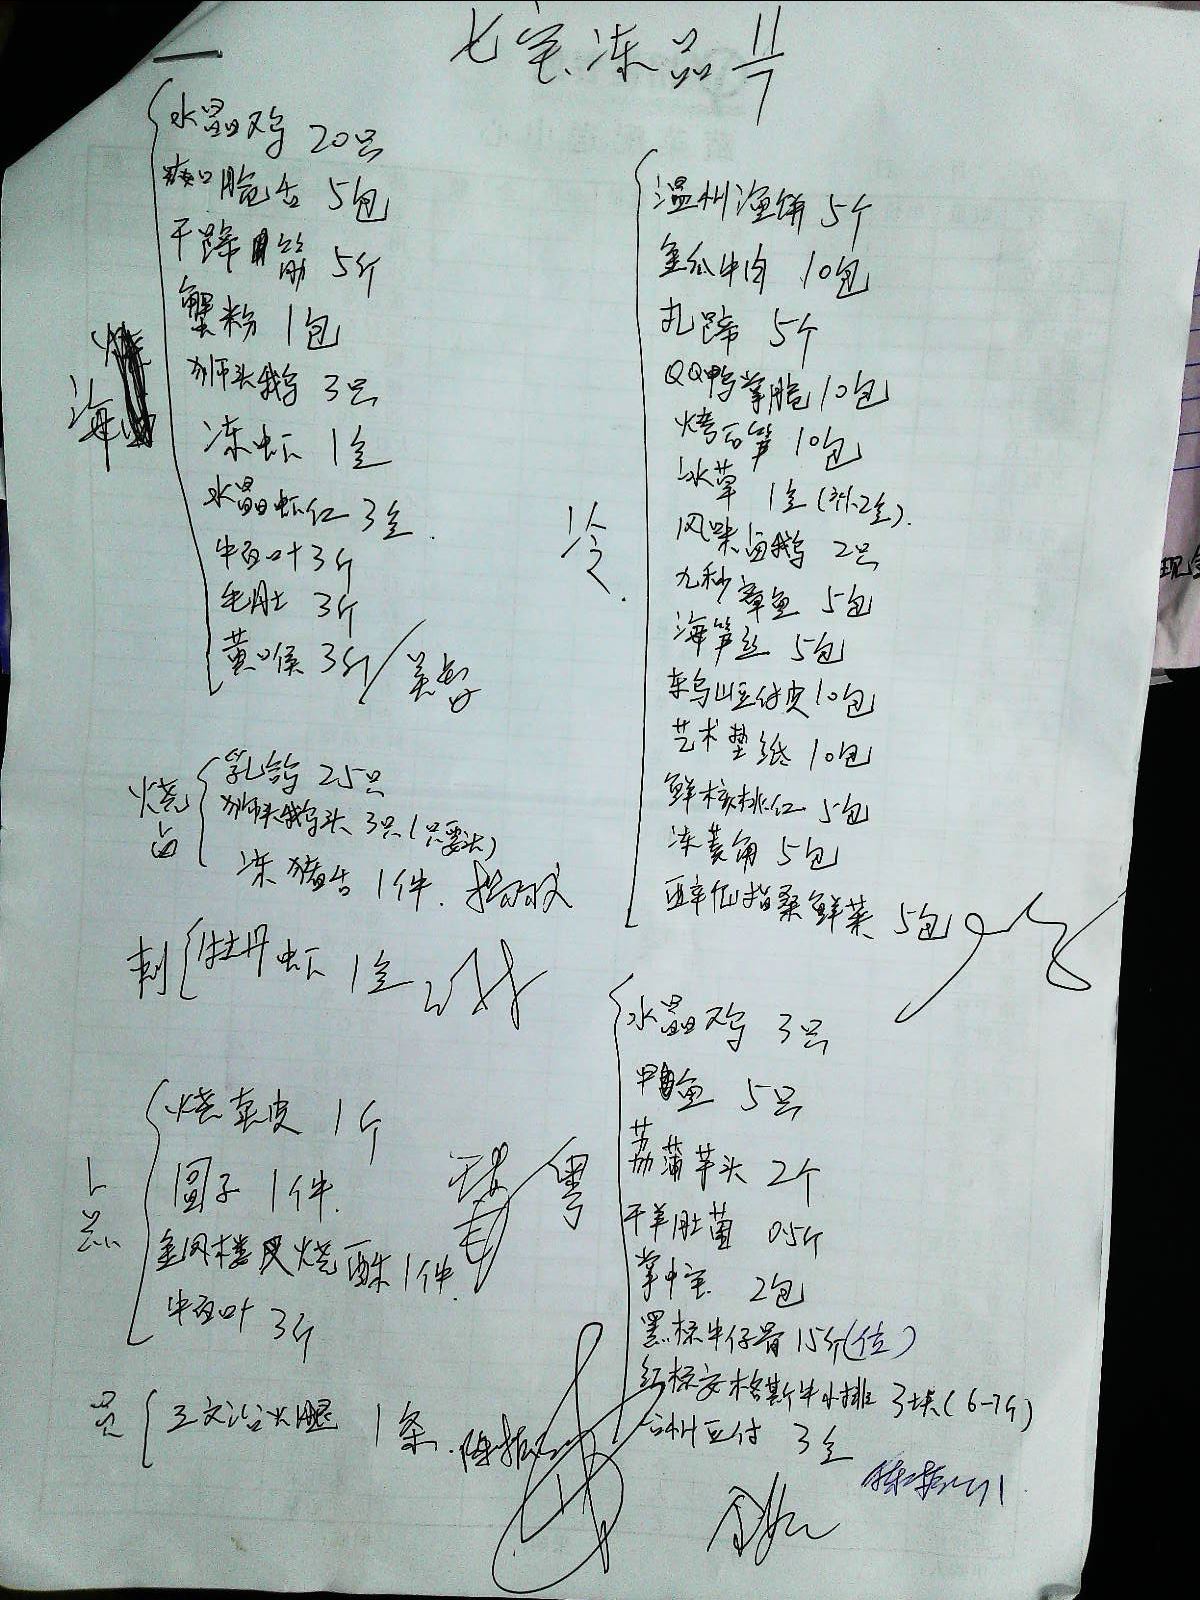 七宝冻品 11/7
水晶鸡 20只
爽口脆舌 5包
干蹄筋 5斤
蟹粉 1包
狮头鹅 3只
海
冻虾 1盒
水晶虾仁 3盒.
牛百叶 3斤
毛肚 3斤
黄喉 3斤
烧
乳鸽 25只
狮头鹅头 3只(只要头)
冻猪舌 1件.
刺
牡丹虾 1盒
点
烧卖皮 1斤
圆子 1件.
金凤楼叉烧酥 1件.
牛百叶 3斤
三文治火腿 1条.
冷.
温州渔饼 5个
金瓜牛肉 10包
扎蹄 5个
QQ鸭掌脆 10包
烤石笋 10包
冰草 1盒
风味卤鹅 2只
九秒章鱼 5包
海笋丝 5包
车乌山豆付皮 10包
艺术垫纸 10包
鲜核桃仁 5包
冻菱角 5包
鲜菜 5包
粤
水晶鸡 3只
甲鱼 5只
荔蒲芋头 2个
干羊肚菌 0.5斤
掌中宝 2包
黑标牛仔骨 15斤(位)
红标安格斯牛小排 3块(6-7斤)
豆付 3盒